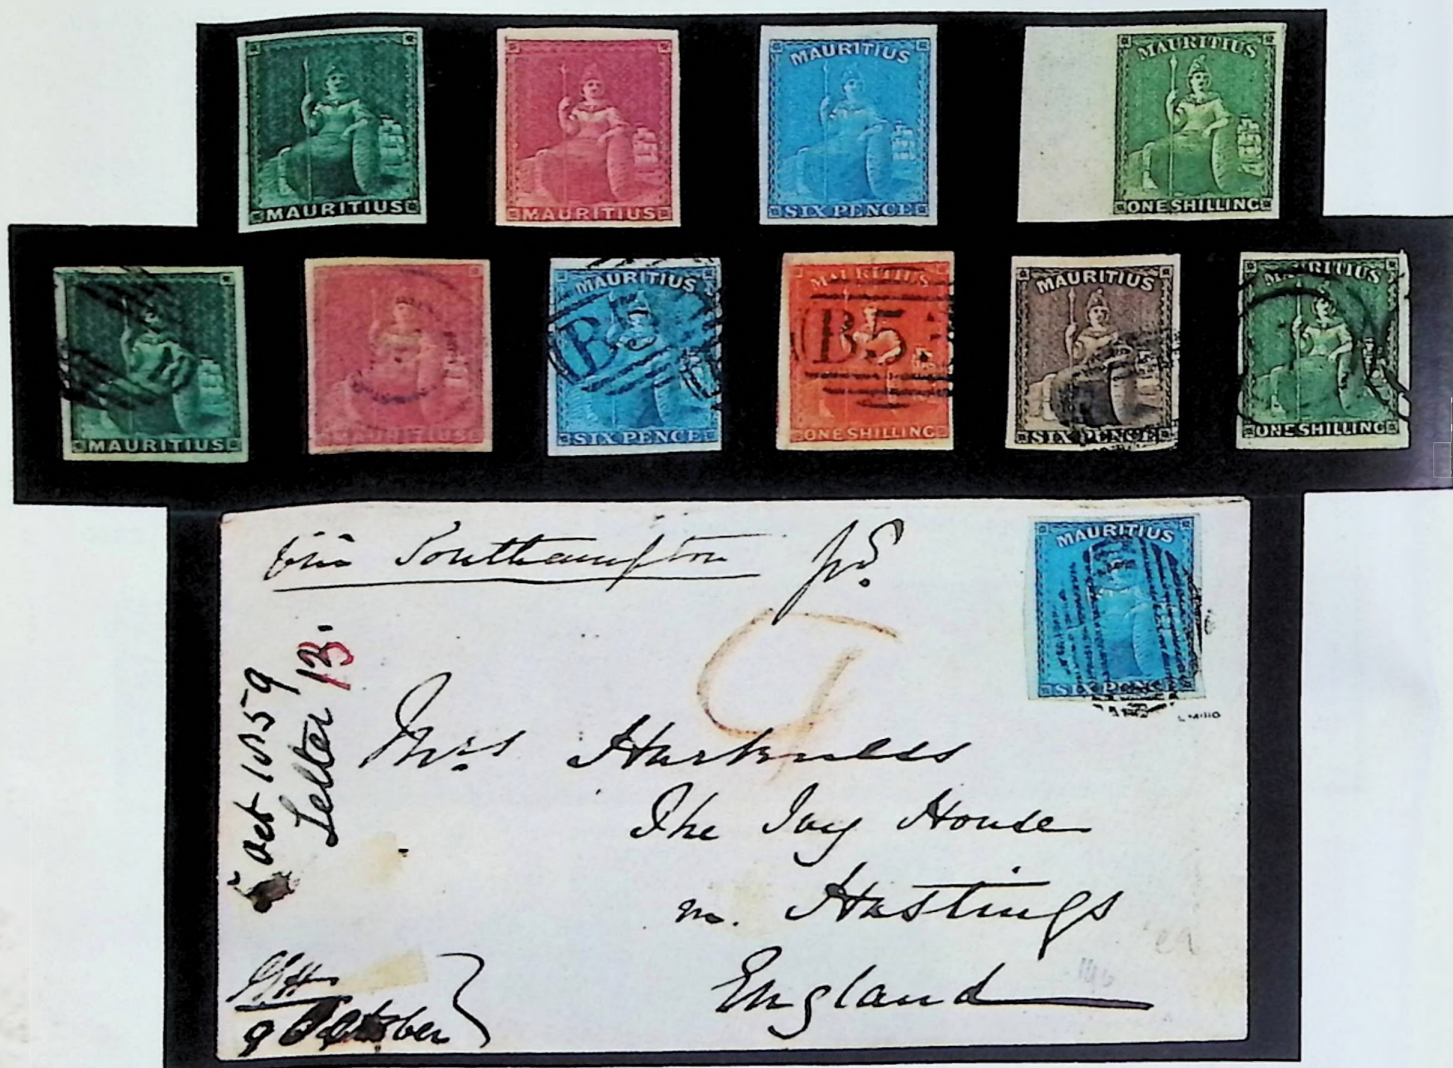 MAURITIUS
MAURITIUS
MAURITIUS
SIX PENCE
MAURITIUS
ONE SHILLING
MAURITIUS
MAURITIUS
MAURITIUS
B5
SIX PENCE
MAURITIUS
B5.
ONE SHILLING
MAURITIUS
SIX PENCE
MAURITIUS
ONE SHILLING
via Southampton
MAURITIUS
SIX PENCE
5 Oct 1859
Letter 13.
Mrs Harkness
The Ivy House
nr. Hastings
England
9 October